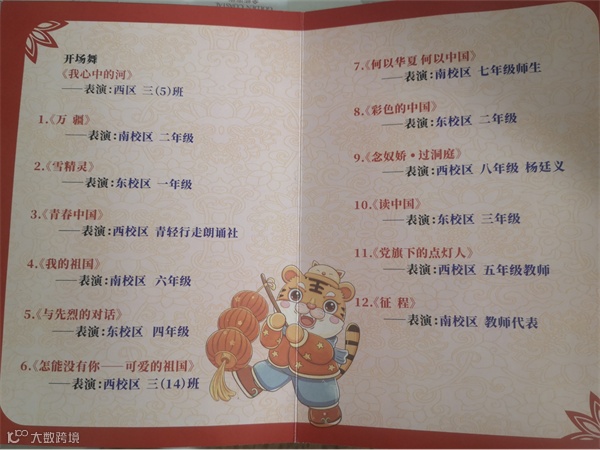 开场舞
《我心中的河》
——表演:西区 三(5)班
1.《万 疆》
——表演:南校区 二年级
2.《雪精灵》
——表演:东校区 一年级
3.《青春中国》
——表演:西校区 青轻行走朗诵社
4.《我的祖国》
——表演:南校区 六年级
5.《与先烈的对话》
——表演:东校区 四年级
6.《怎能没有你——可爱的祖国》
——表演:西校区 三(14)班
7.《何以华夏 何以中国》
——表演:南校区 七年级师生
8.《彩色的中国》
——表演:东校区 二年级
9.《念奴娇·过洞庭》
——表演:西校区 八年级 杨廷义
10.《读中国》
——表演:东校区 三年级
11.《党旗下的点灯人》
——表演:西校区 五年级教师
12.《征 程》
——表演:南校区 教师代表
王
大数跨境